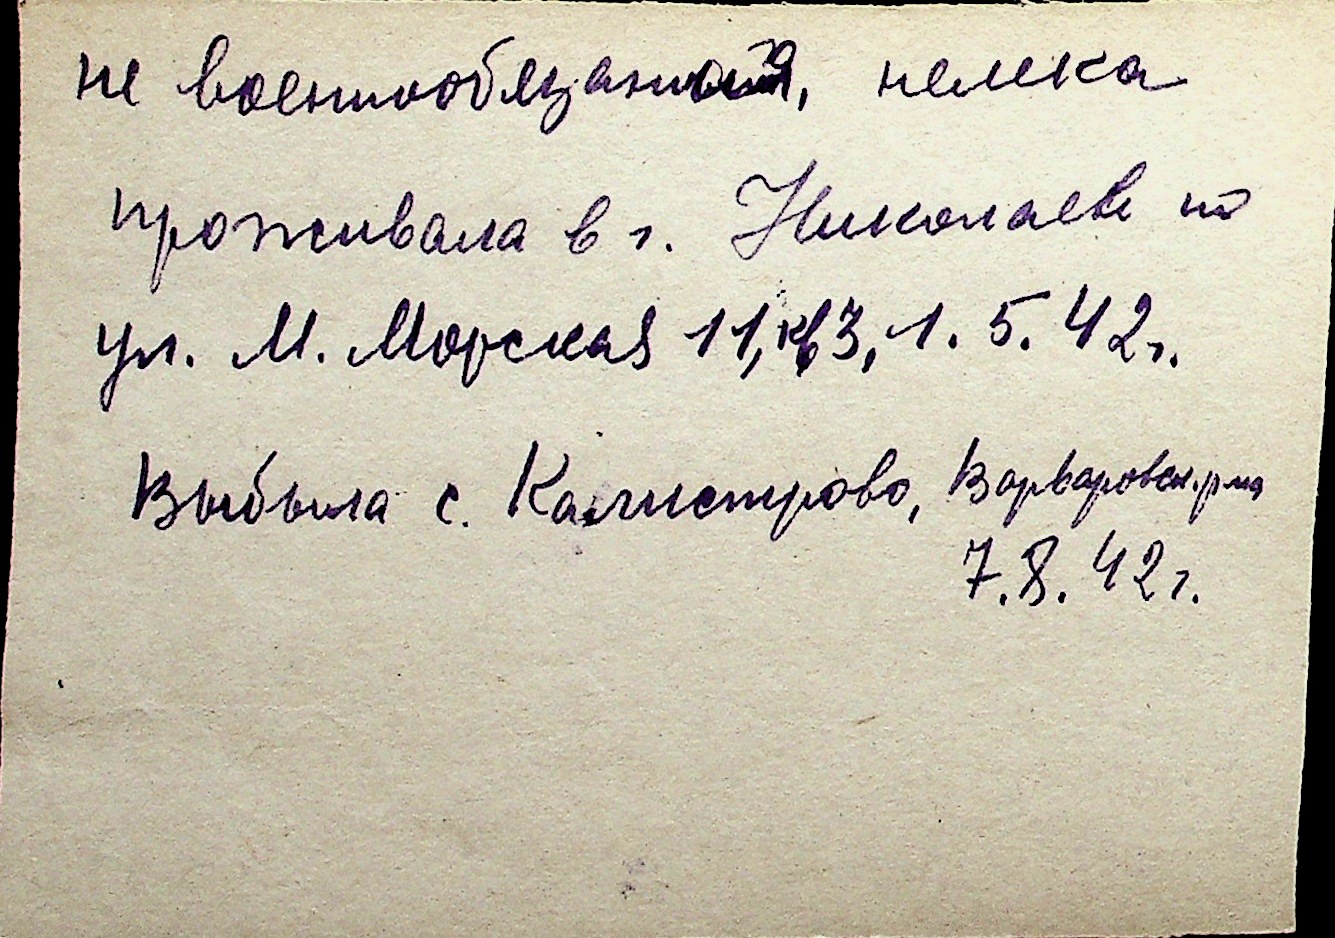 не военнообязанная, немка
проживала в г. Николаеве по
ул. М. Морская 11, кв 3, 1. 5. 42 г.
Выбыла с. Калистрово, Варваровск. р-на
7. 8. 42 г.